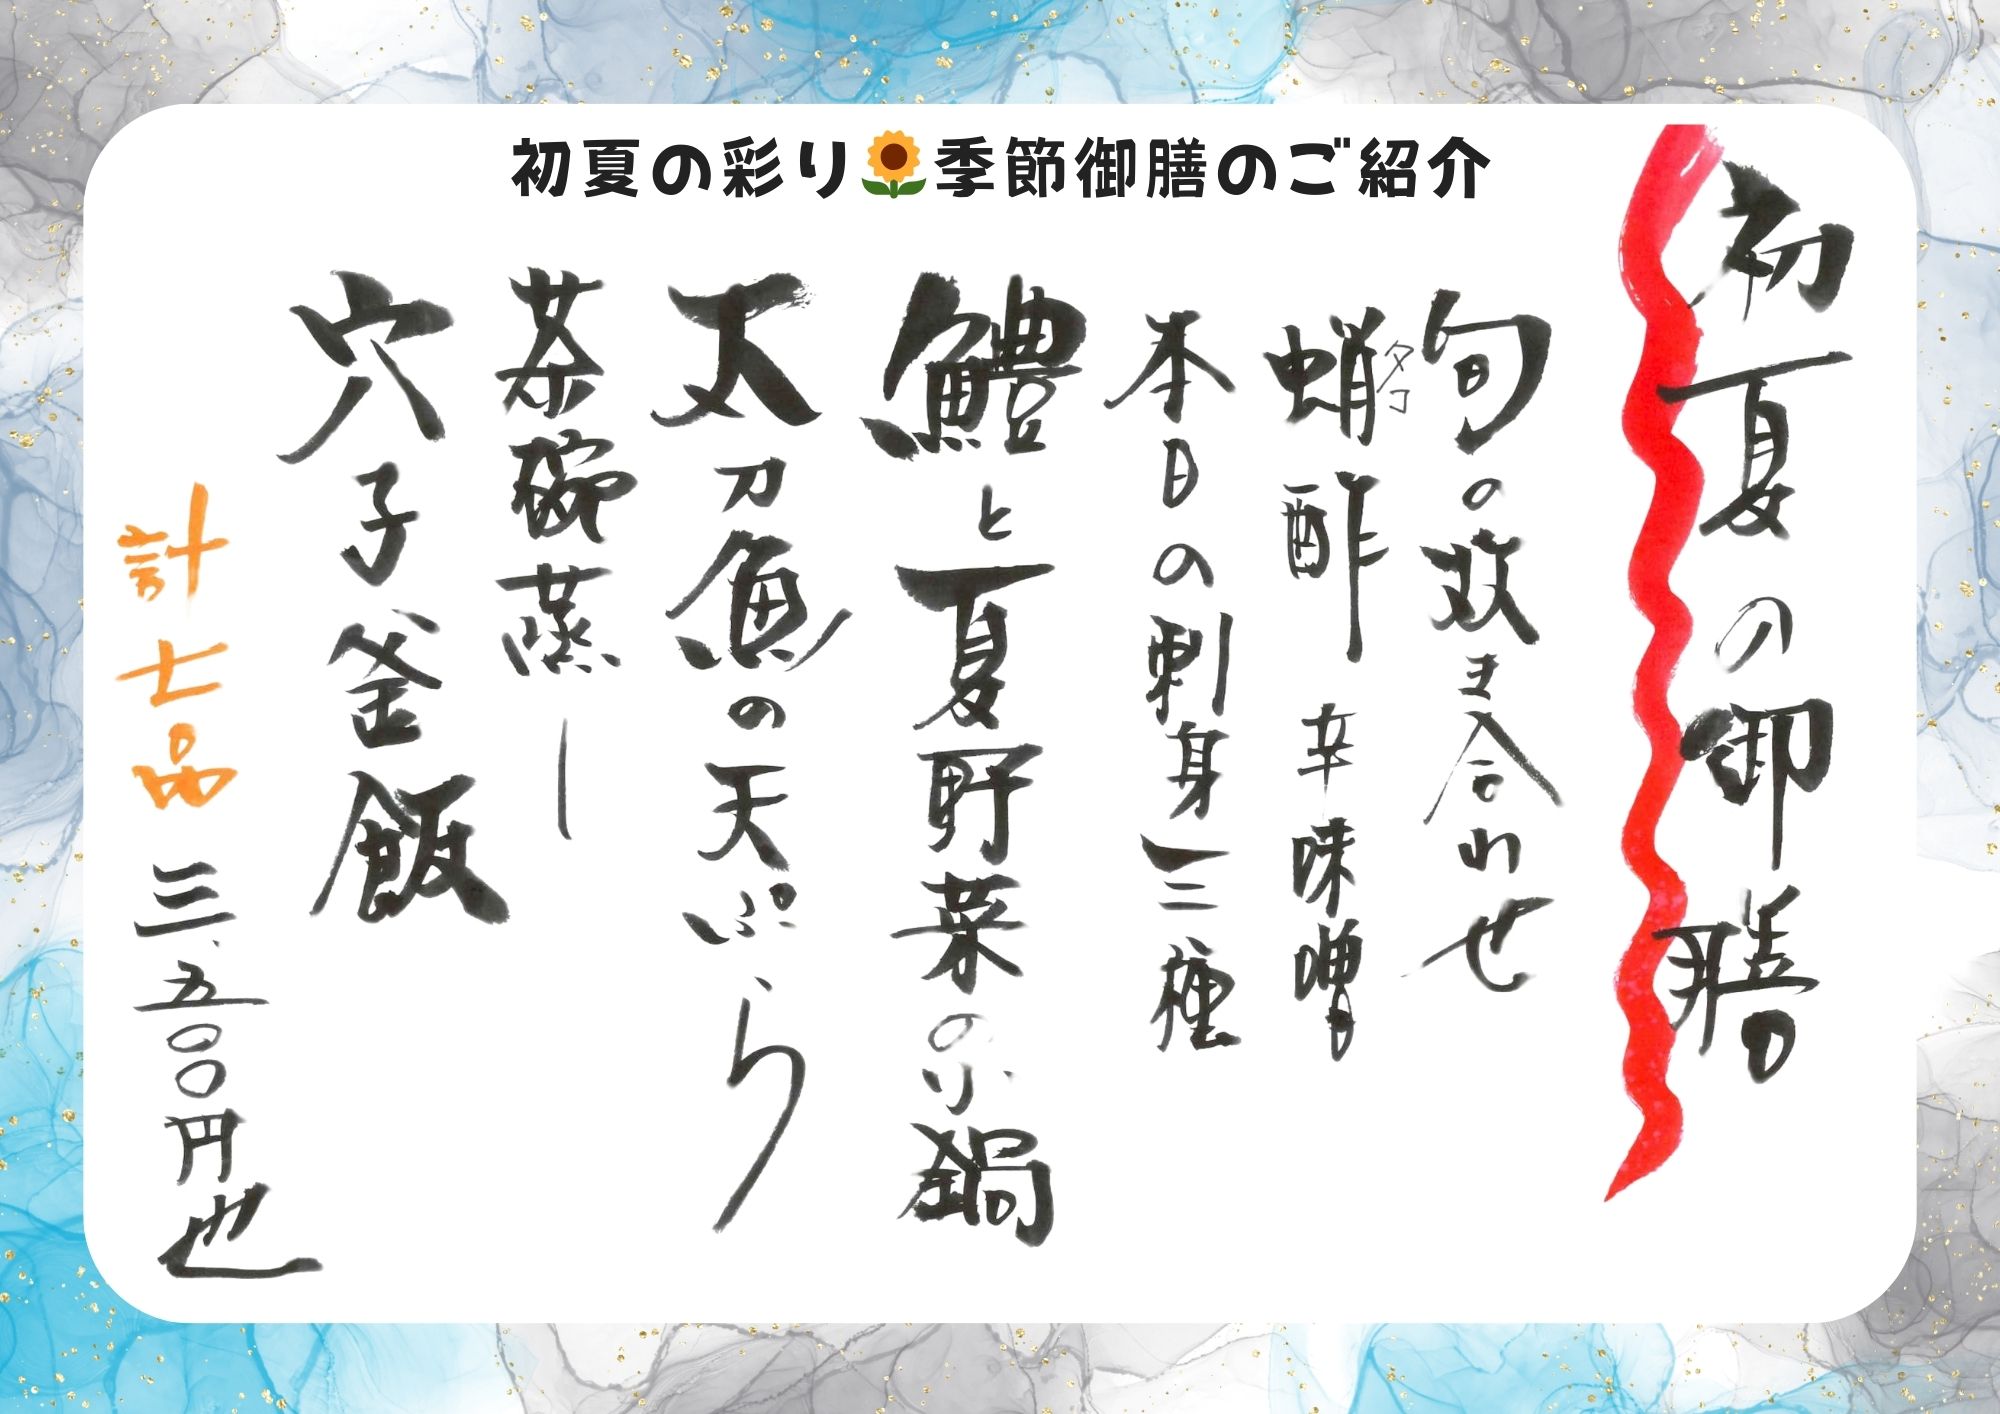 初夏の彩り🌻季節御膳のご紹介
初夏の御膳
旬の炊き合わせ
蛸酢 辛味噌
タコ
本日の刺身三種
鱧と夏野菜の小鍋
太刀魚の天ぷら
茶碗蒸し
穴子釜飯
計七品 三、五〇〇円也